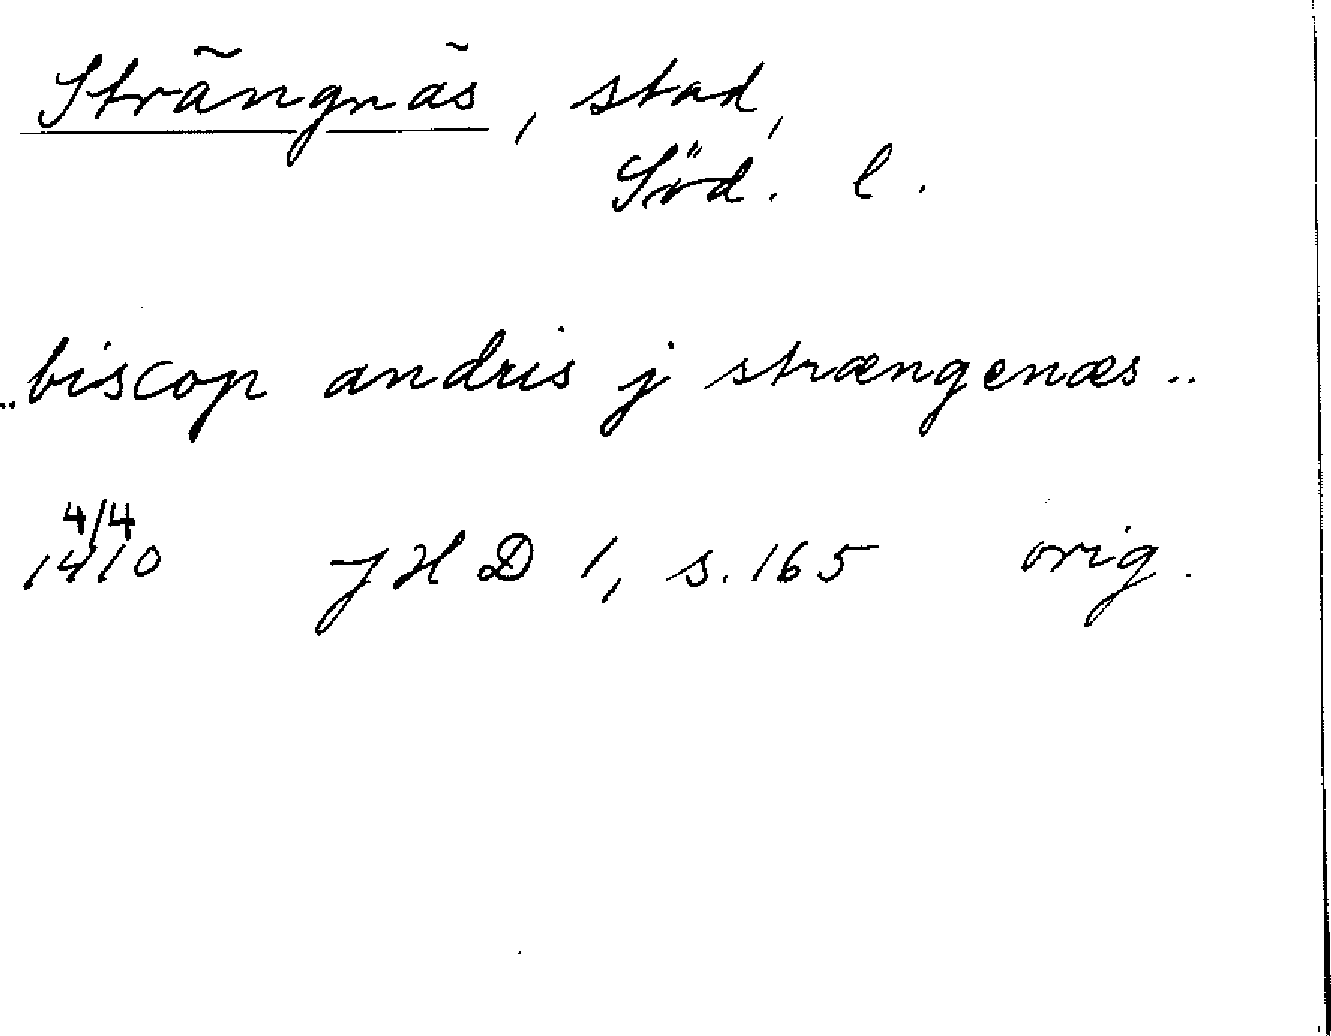 Strängnäs, stad,
Söd. l.
..biscop andris j strængenæs..
4/4
1410 JHD 1, s. 165 orig.